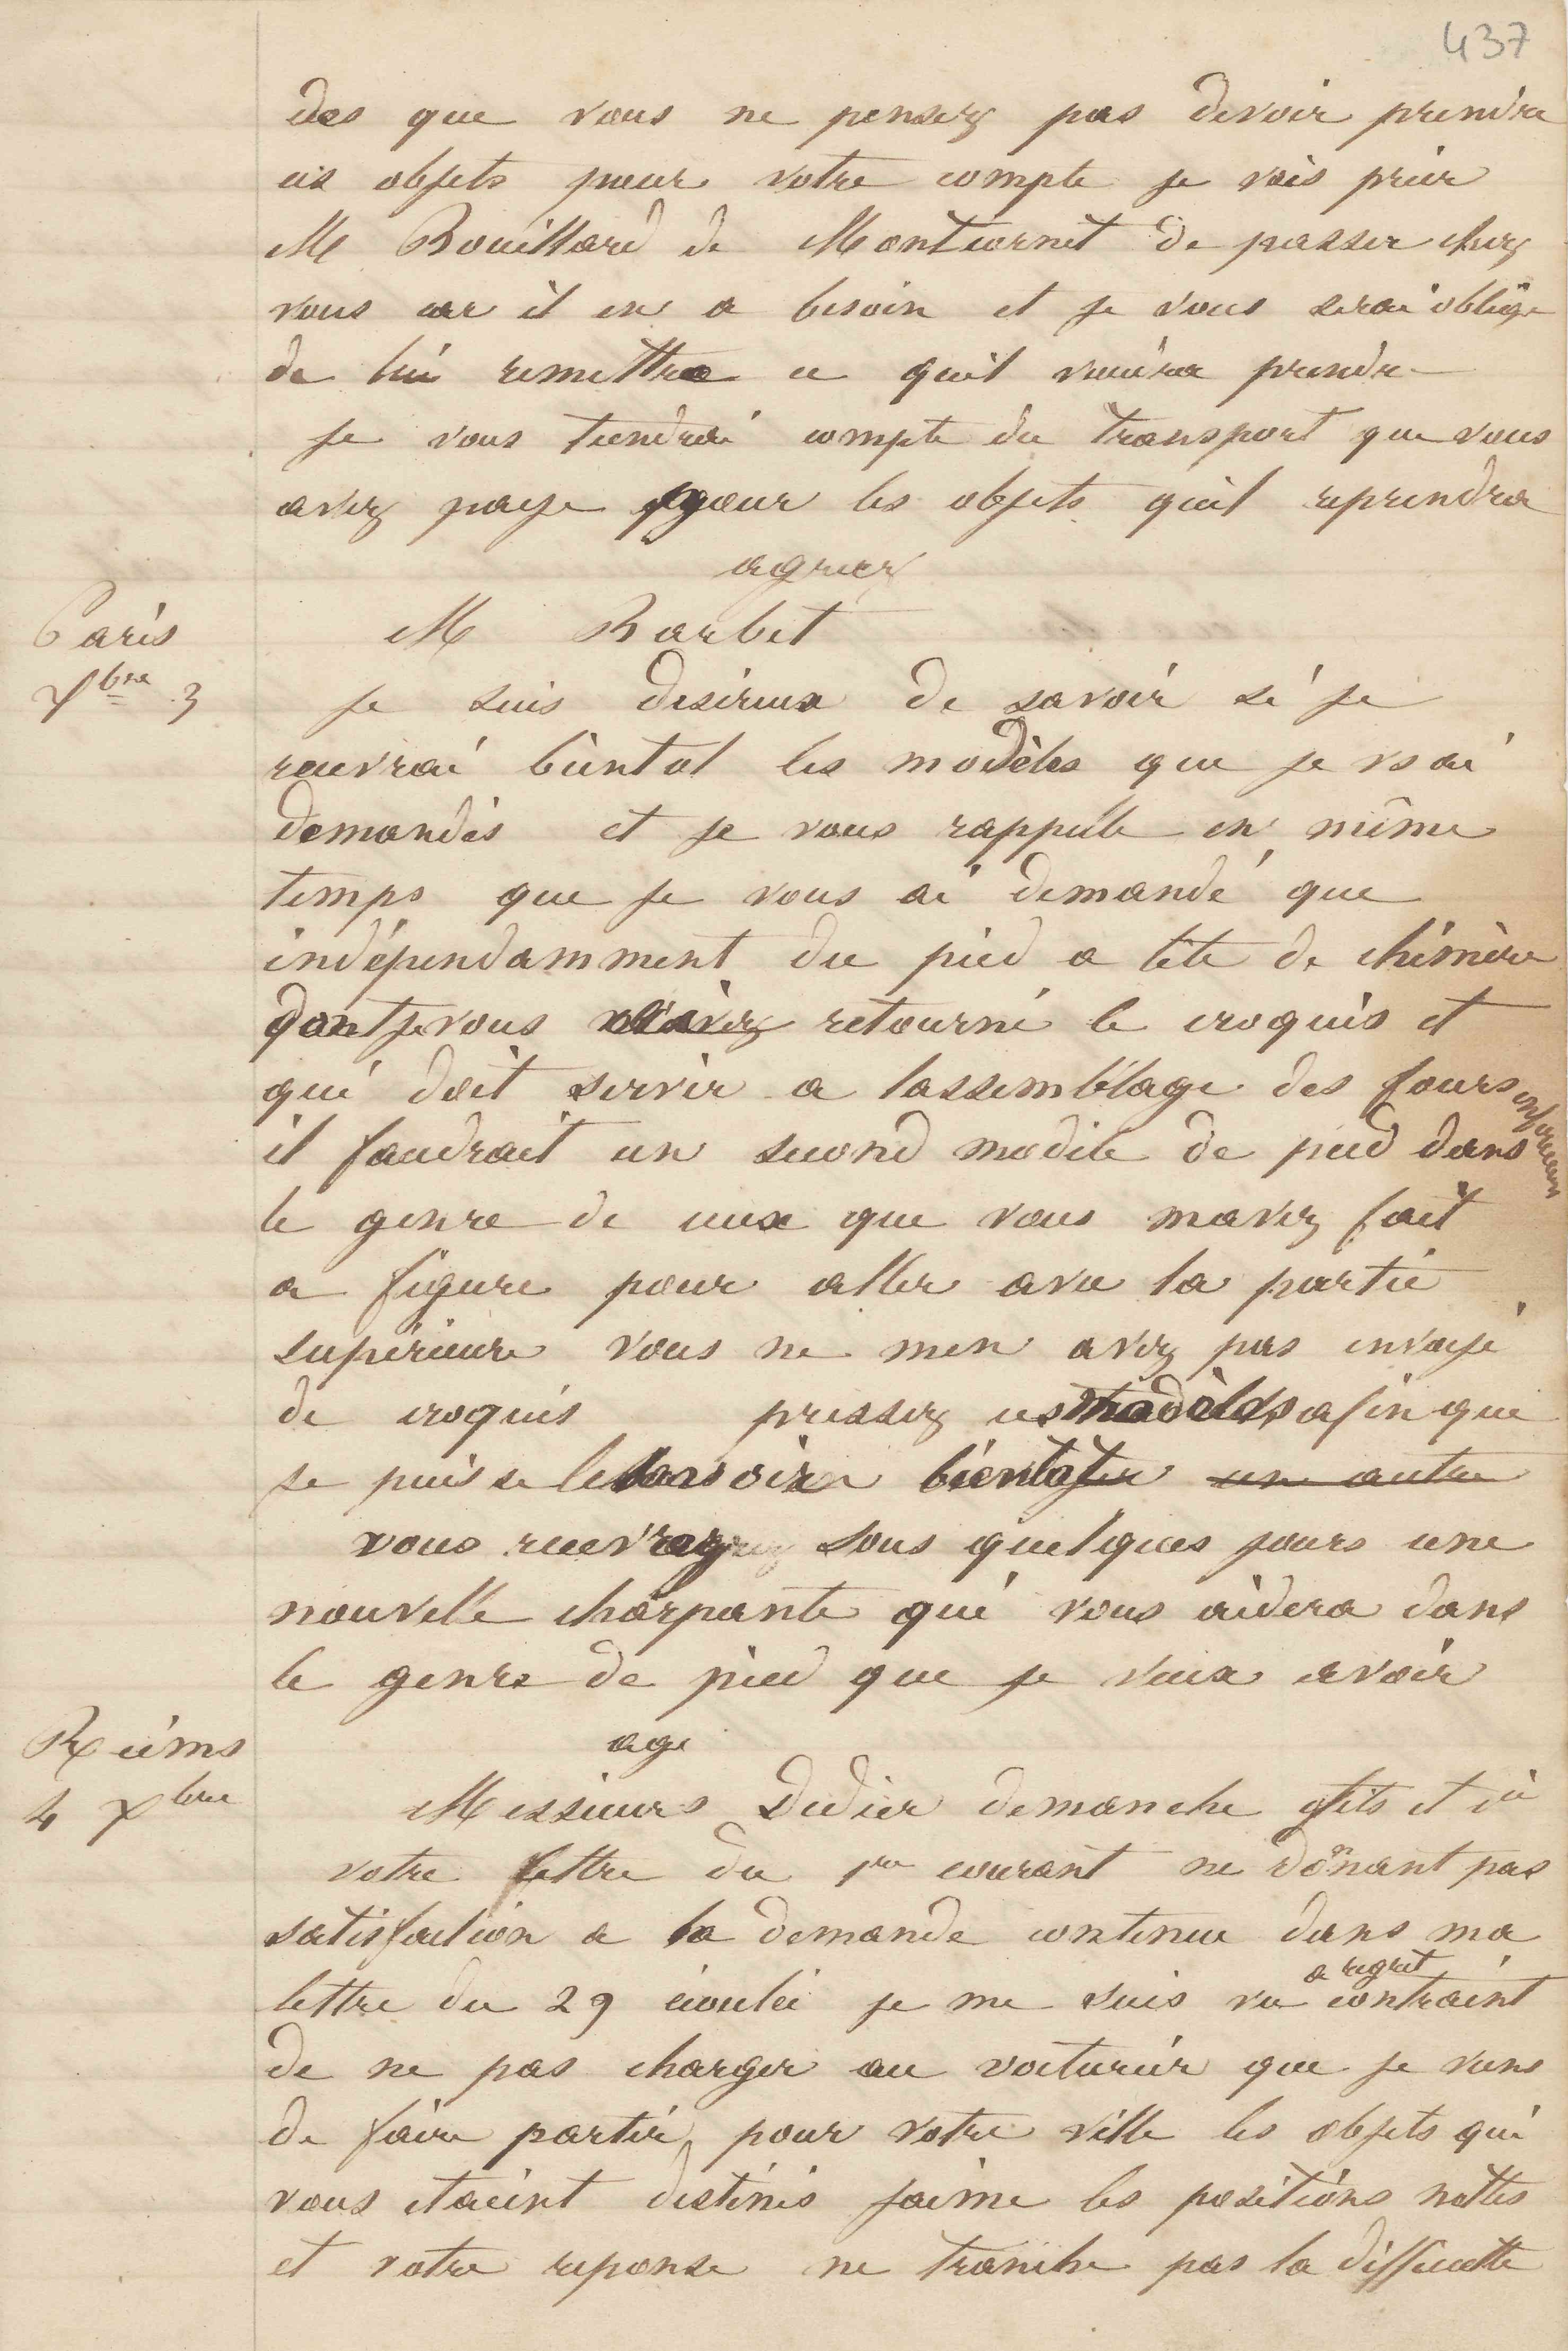 437
des que vous ne pensez pas devoir prendre
ces objets pour votre compte je vais prier
M Rouillard de Montcornet de passer chez
vous car il en a besoin et je vous serai obligé
de lui remettre ce quil voudra prendre
je vous tiendrai compte du transport que vous
avez paye pour les objets quil reprendra
agreez
Paris
Xbre 3
M Barbet
je suis desireux de savoir si je
recevrai bientot les modèles que je vs ai
demandés et je vous rappelle en même
temps que je vous ai demandé que
indépendamment du pied a tête de chimère
dont je vous retourné le croquis et
qui doit servir a lassemblage des fours inferieurs
il faudrait un second modèle de pied dans
le genre de ceux que vous mavez fait
a figure pour aller avec la partie
supérieure vous ne men avez pas envoyé
de croquis pressez ces modèles afin que
je puisse les avoir bientot un autre
vous recevrez sous quelques jours une
nouvelle charpente qui vous aidera dans
le genre de pied que je veux avoir
age
Reims
4 Xbre
Messieurs Didier demanche fils et cie
votre lettre du 1er courant ne donnant pas
satisfaction a la demande contenue dans ma
lettre du 29 écoulée je me suis vu a regret contraint
de ne pas charger au voiturier que je viens
de faire partir pour votre ville les objets qui
vous etaient destinés jaime les positions nettes
et votre reponse ne tranche pas la difficulté